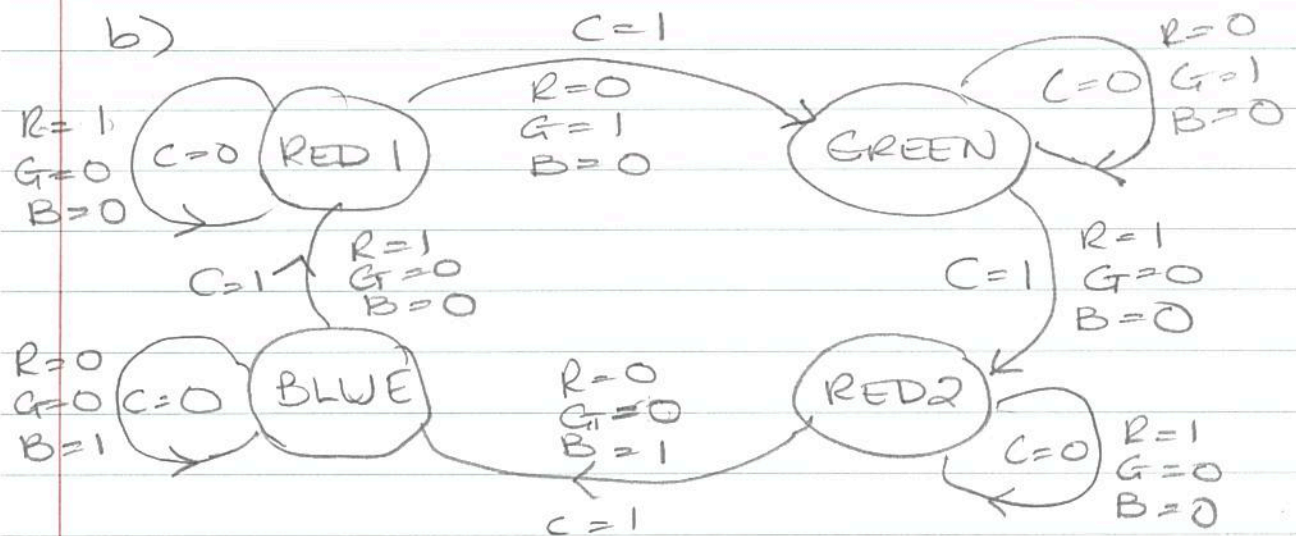 b)
C=1
R=0
G=1
B=0
R=0
G=1
B=0
C=0
R=1
G=0
B=0
C=0
RED 1
GREEN
C=1
R=1
G=0
B=0
C=1
R=1
G=0
B=0
R=0
G=0
B=1
C=0
BLUE
R=0
G=0
B=1
RED2
C=0
R=1
G=0
B=0
C=1